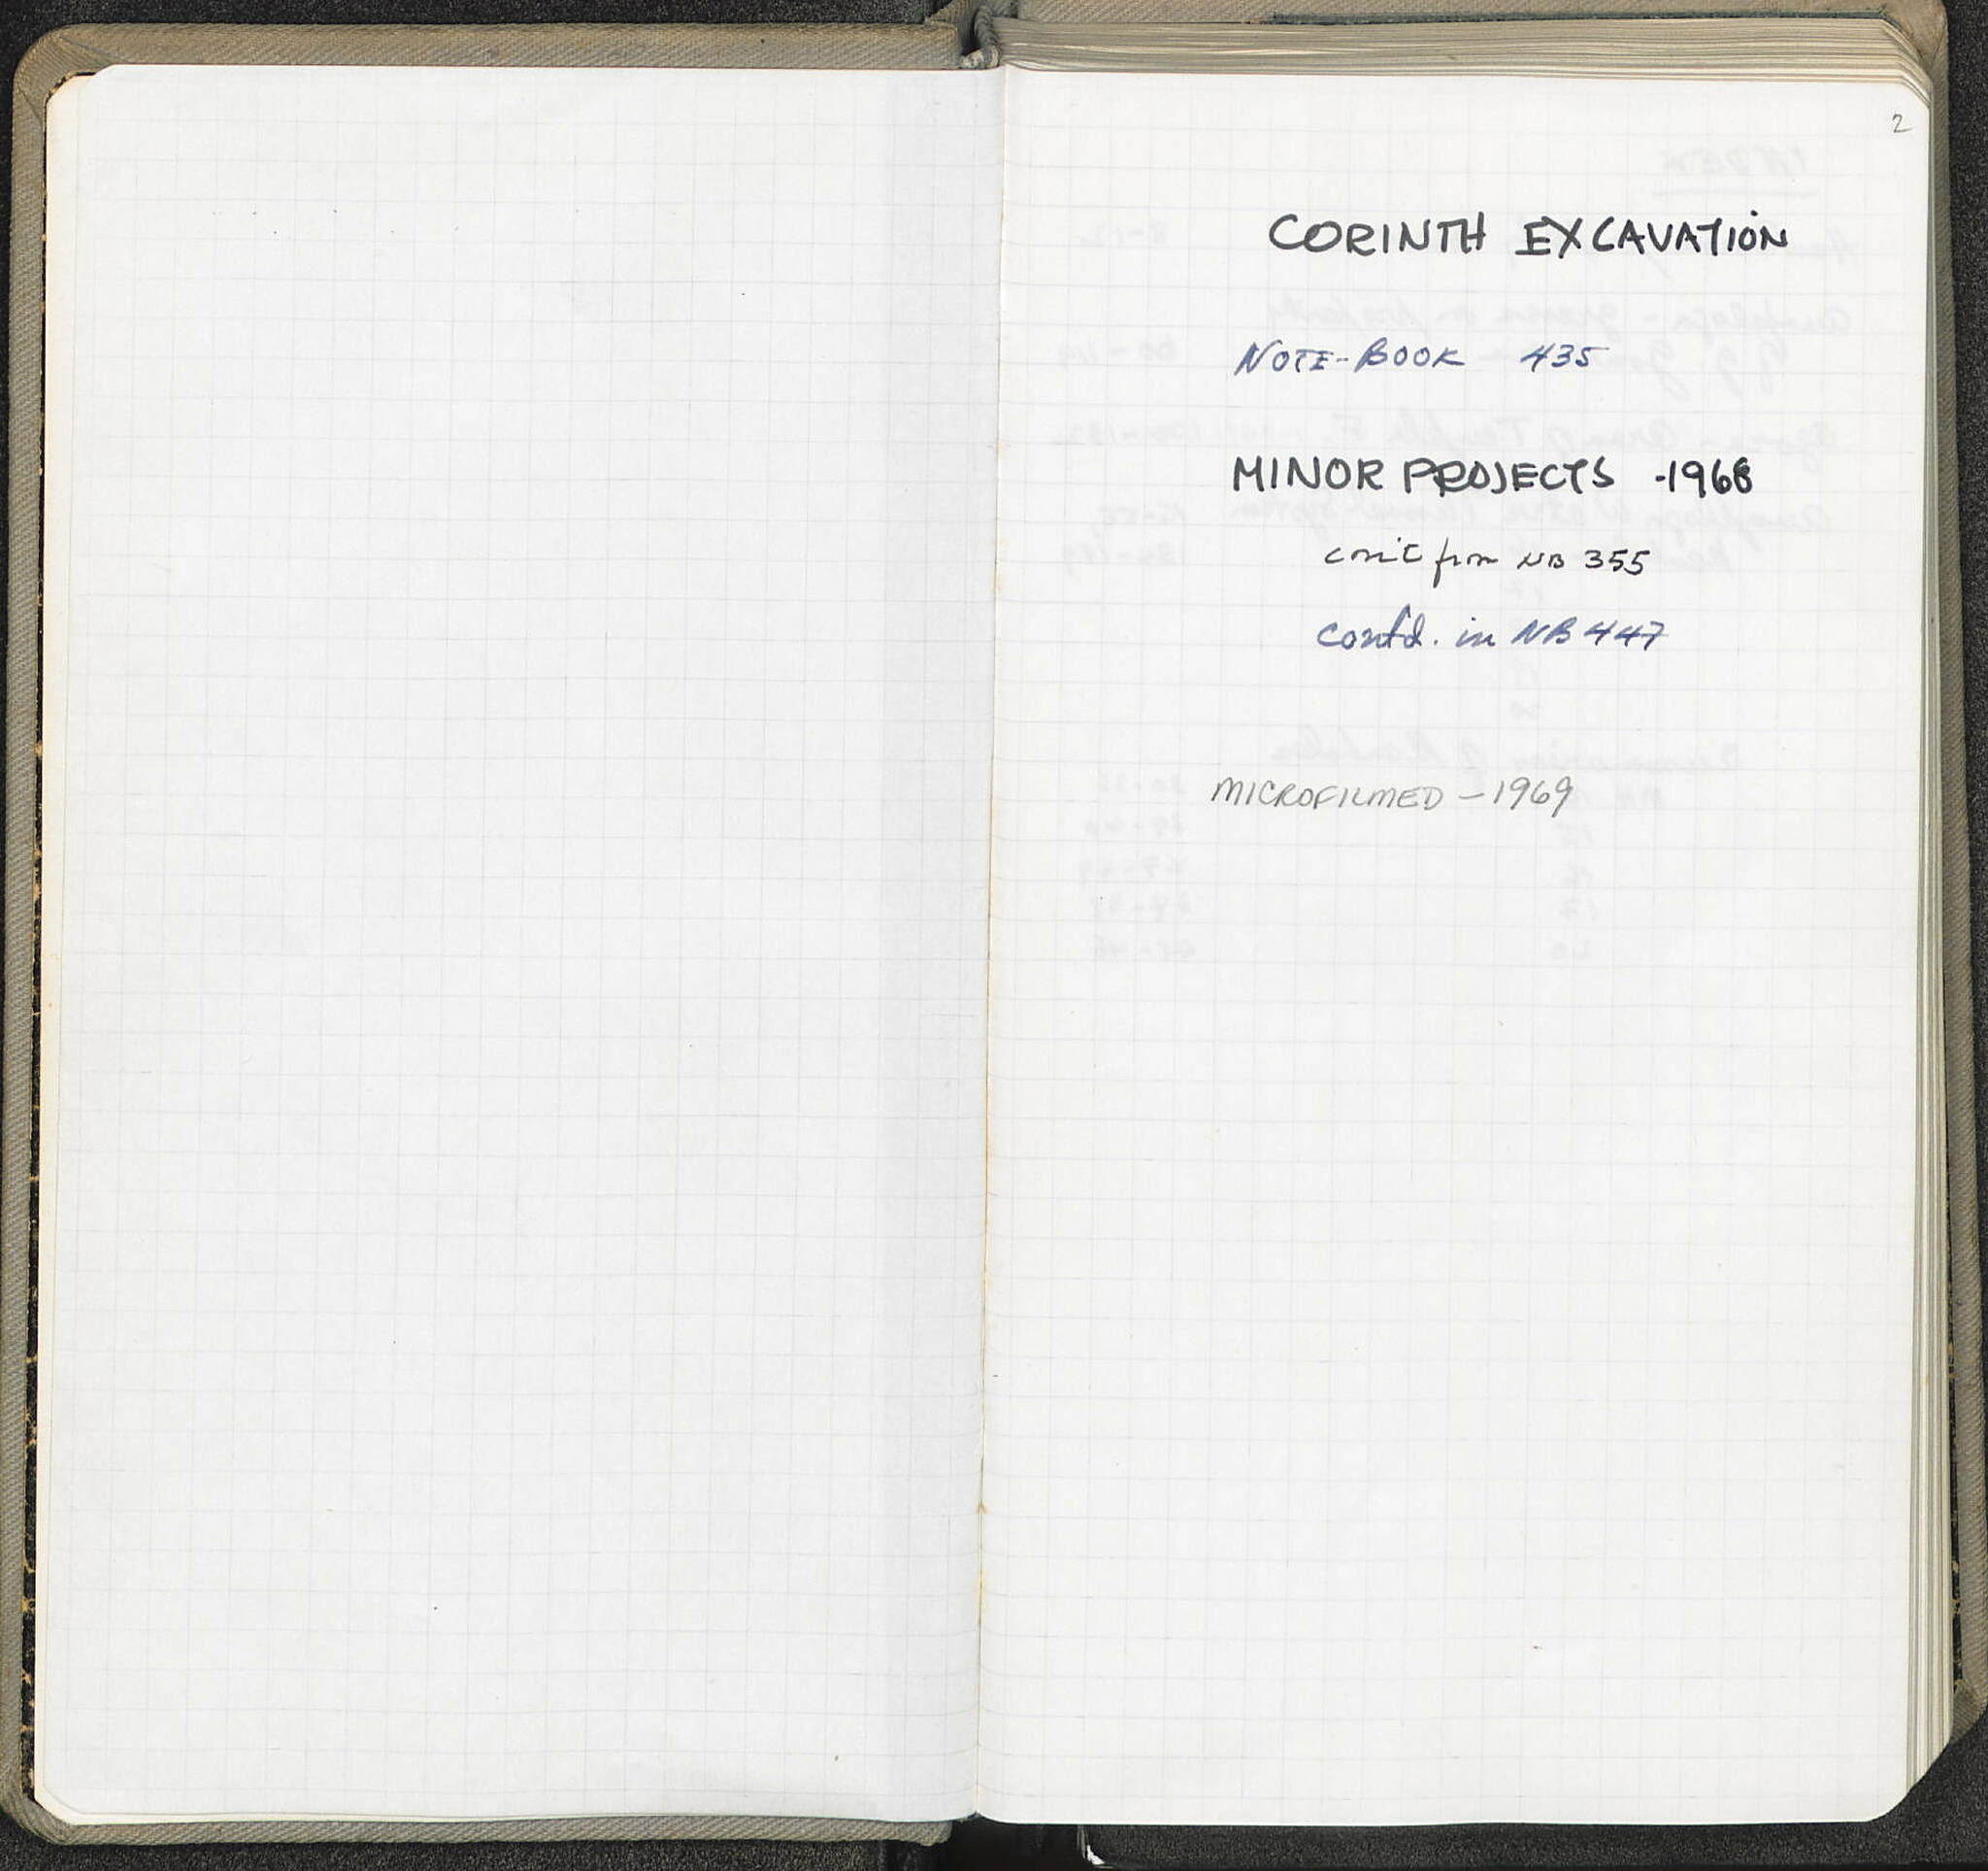 2
CORINTH EXCAVATION
NOTE-BOOK 435
MINOR PROJECTS -1968
con't from NB 355
contd. in NB 447
MICROFILMED - 1969